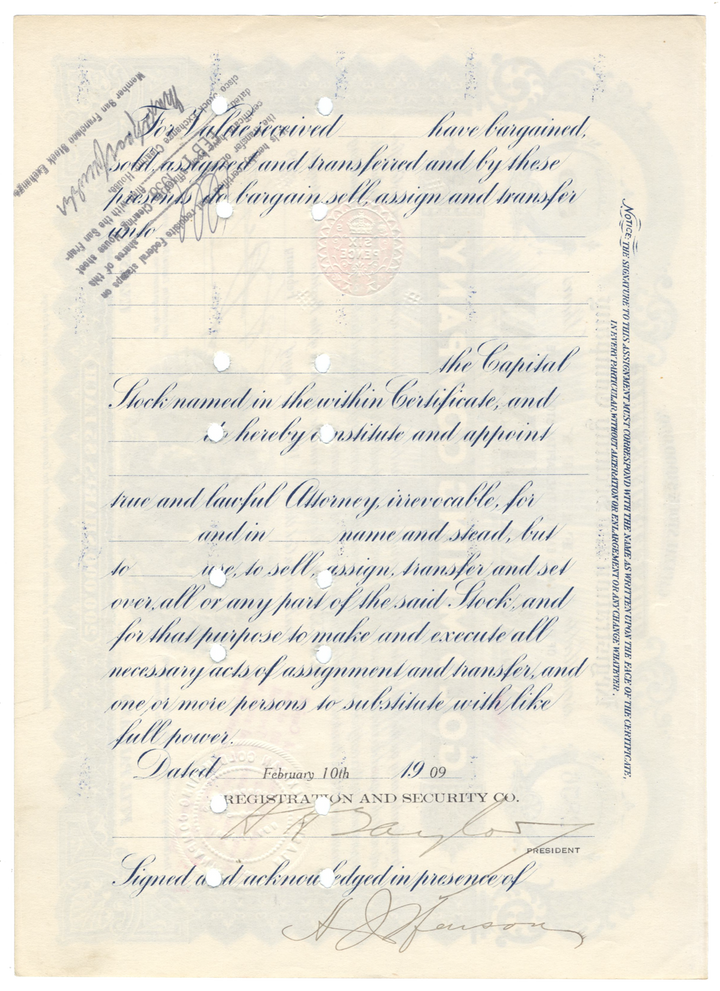 For Value received have bargained,
sold, assigned and transferred and by these
presents do bargain, sell, assign and transfer
unto
the Capital
Stock named in the within Certificate, and
do hereby constitute and appoint
true and lawful Attorney, irrevocable, for
and in name and stead, but
to use, to sell, assign, transfer and set
over, all or any part of the said Stock, and
for that purpose to make and execute all
necessary acts of assignment and transfer, and
one or more persons to substitute with like
full power.
Dated February 10th 1909
REGISTRATION AND SECURITY CO.
H A Taylor
PRESIDENT
Signed and acknowledged in presence of
NOTICE: THE SIGNATURE TO THIS ASSIGNMENT MUST CORRESPOND WITH THE NAME AS WRITTEN UPON THE FACE OF THE CERTIFICATE,
IN EVERY PARTICULAR, WITHOUT ALTERATION OR ENLARGEMENT OR ANY CHANGE WHATEVER.
Federal stamps on
shares of this
Clearing House sheet
with the San Fran-
cisco Stock Exchange Clearing House.
Member San Francisco Stock Exchange